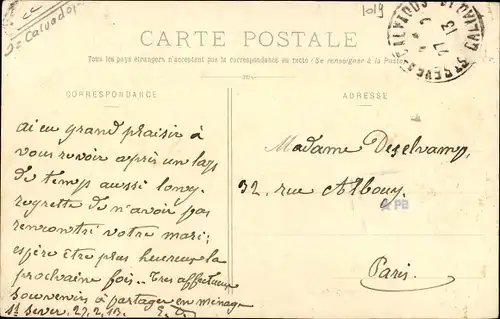 1019
Dt Calvados
CARTE POSTALE
Tous les pays étrangers n'acceptent pas la correspondance au recto (Se renseigner à la Poste)
CORRESPONDANCE
ADRESSE
ai eu grand plaisir à
vous revoir après un laps
de temps aussi long.
regrette de n'avoir pas
rencontré votre mari;
espère être plus heureux la
prochaine fois. Très affectueux
souvenirs à partager en ménage
St Sever. 27.2.13.
Madame Deselvamp,
32, rue Albouy.
Paris.
CALVADOS
13